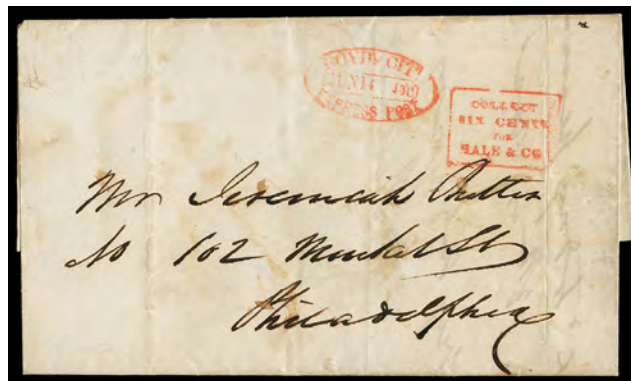 BOYD'S CITY
JUN 14
EXPRESS POST
COLLECT
SIX CENTS
FOR
HALE & CO
Mr Jeremiah
No 102 Market St
Philadelphia